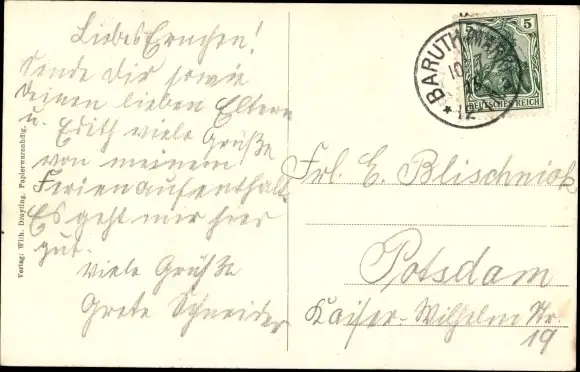 Liebes Ernchen!
Sende Dir sowie
Deinen lieben Eltern
u. Edith viele Grüße
von meinem
Ferienaufenthalt.
Es geht mir hier
gut.
Viele Grüße
Grete Schneider
Verlag: Wilh. Papierwarenhdlg.
BARUTH (MARK)
10 7
12
* 12
5
DEUTSCHES REICH
Frl. E. Blischniok
Potsdam
Kaiser-Wilhelm Str.
19